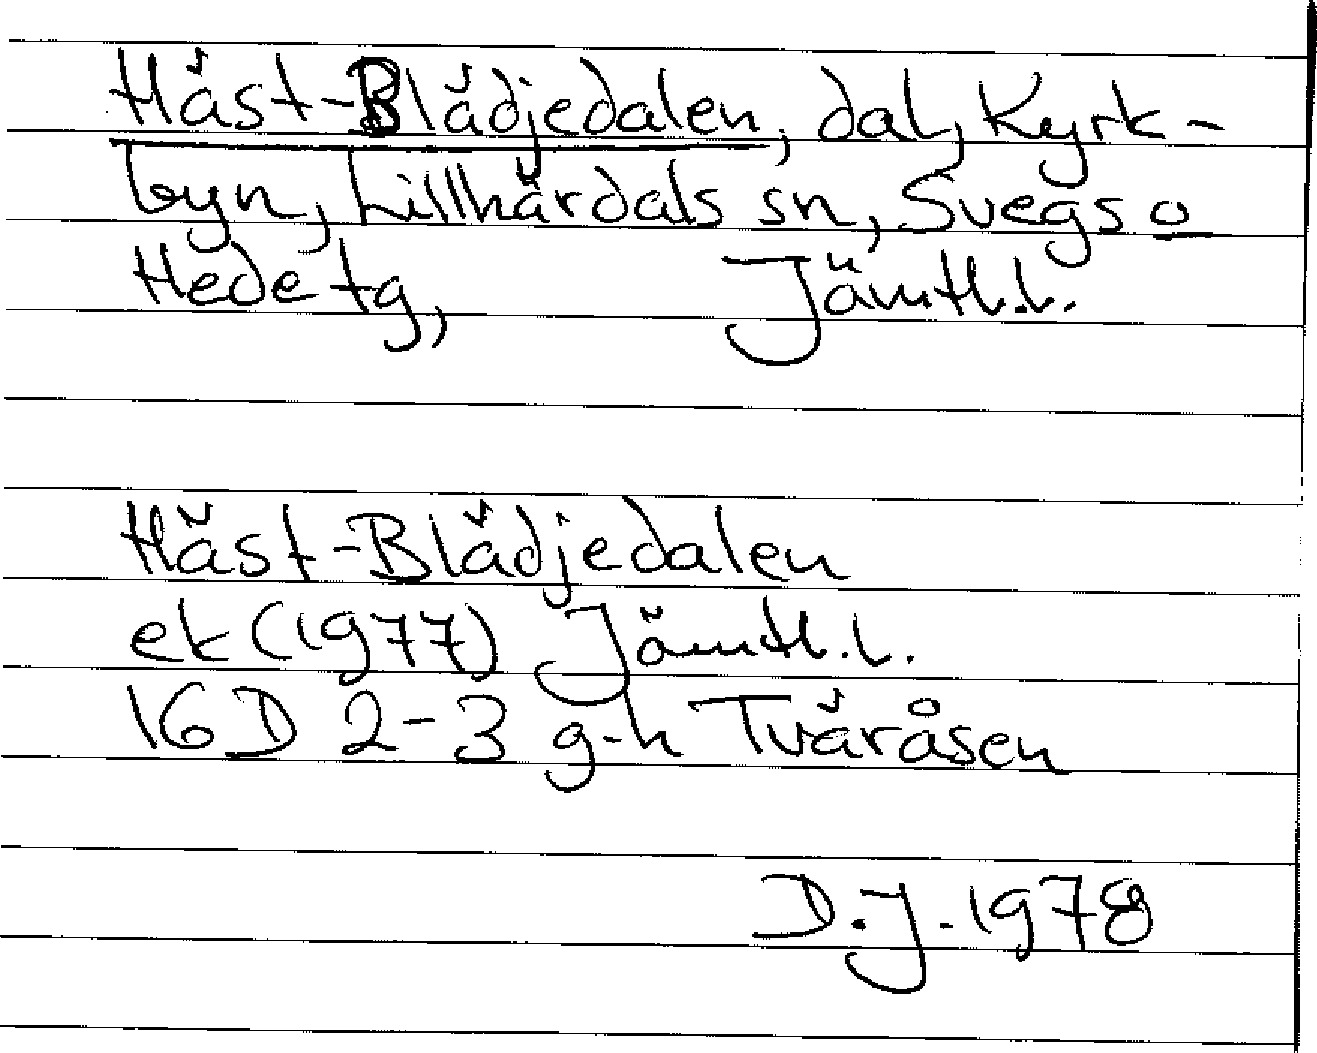 Häst-Blädjedalen, dal, Kyrk-
byn, Lillhärdals sn, Svegs o
Hede tg, Jämtl.l.
Häst-Blädjedalen
ek (1977) Jämtl.l.
16D 2-3 g-h Tväråsen
D.J. 1978